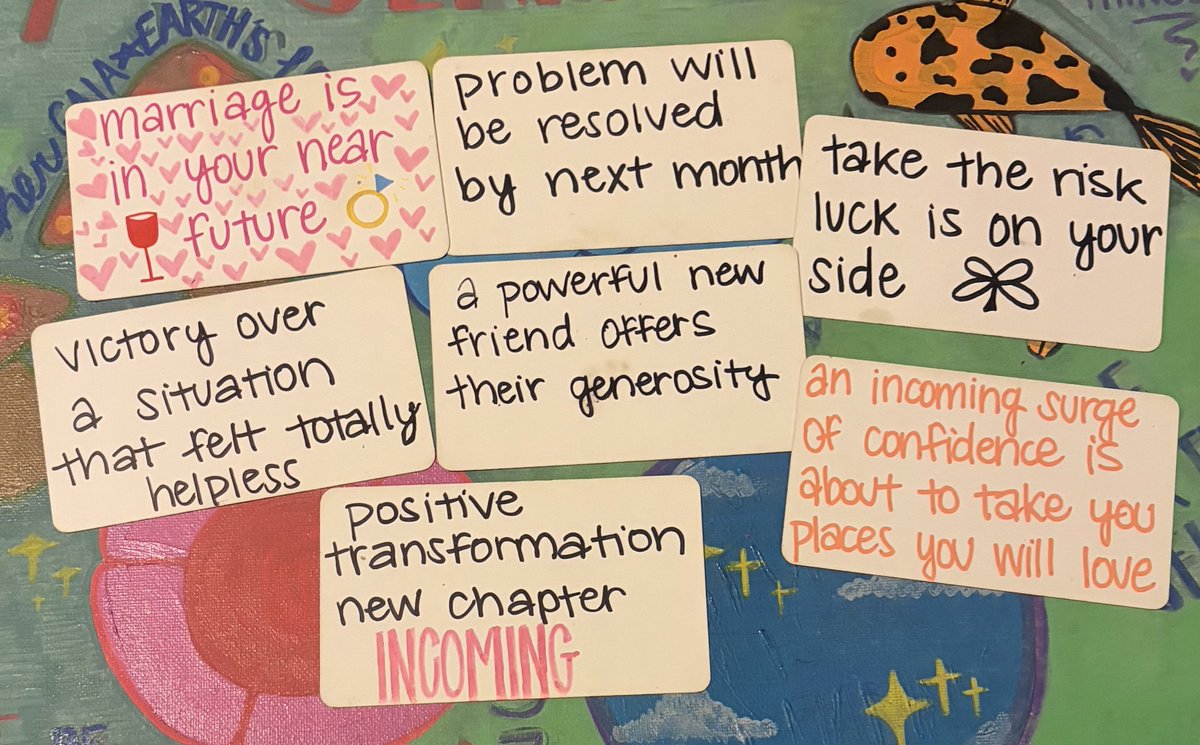 EARTH'S
marriage is
in your near
future
problem will
be resolved
by next month
take the risk
luck is on your
side
victory over
a situation
that felt totally
helpless
a powerful new
friend offers
their generosity
an incoming surge
of confidence is
about to take you
places you will love
positive
transformation
new chapter
INCOMING